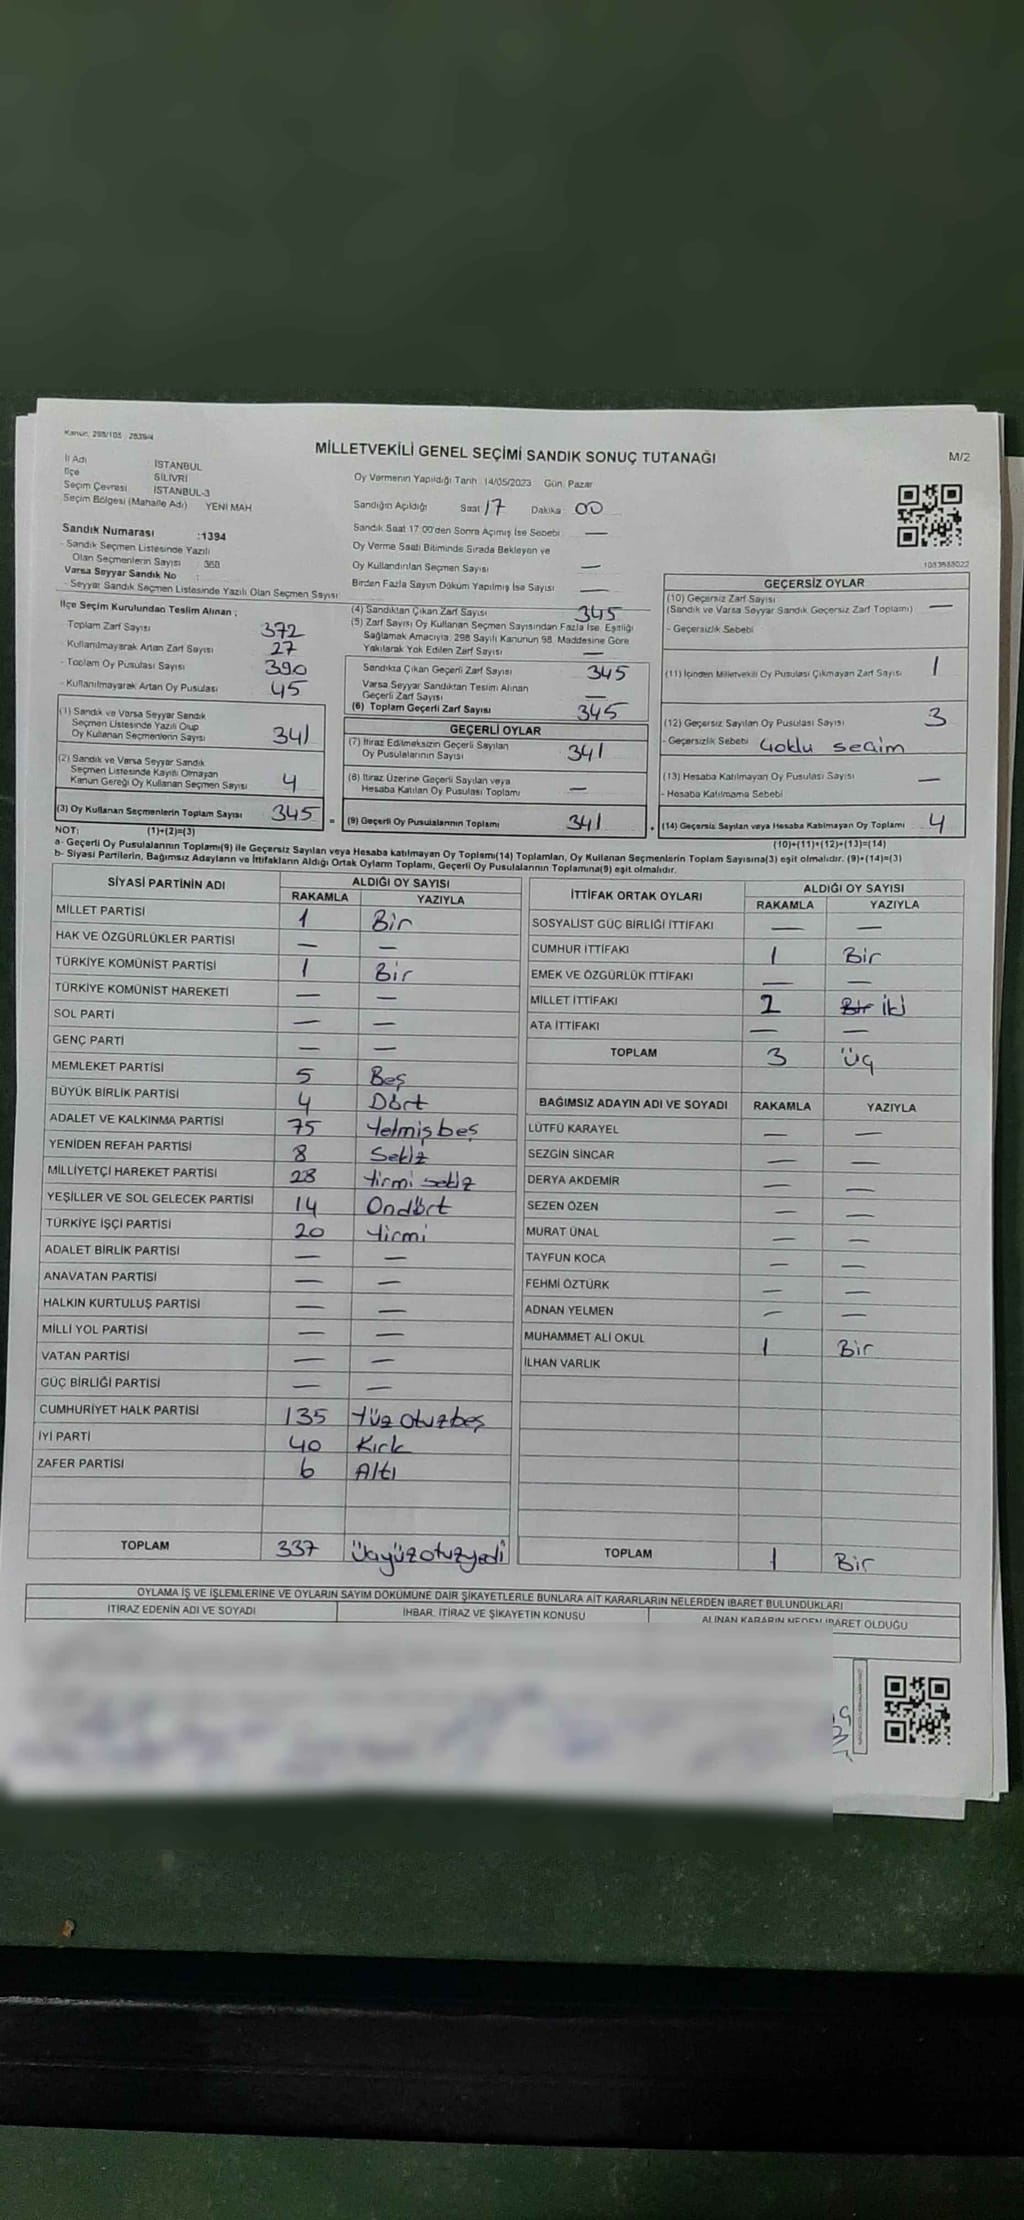 Kanun: 298/105 - 2839/4
MİLLETVEKİLİ GENEL SEÇİMİ SANDIK SONUÇ TUTANAĞI
M/2
İl Adı İSTANBUL
İlçe SİLİVRİ
Seçim Çevresi İSTANBUL-3
Seçim Bölgesi (Mahalle Adı) YENİ MAH
Sandık Numarası :1394
- Sandık Seçmen Listesinde Yazılı
Olan Seçmenlerin Sayısı : 368
Varsa Seyyar Sandık No :
- Seyyar Sandık Seçmen Listesinde Yazılı Olan Seçmen Sayısı
Oy Vermenin Yapıldığı Tarih 14/05/2023 Gün: Pazar
Sandığın Açıldığı Saat 17 Dakika 00
Sandık Saat 17:00'den Sonra Açılmış İse Sebebi —
Oy Verme Saati Bitiminde Sırada Bekleyen ve
Oy Kullandırılan Seçmen Sayısı —
Birden Fazla Sayım Döküm Yapılmış İse Sayısı —
İlçe Seçim Kurulundan Teslim Alınan ;
- Toplam Zarf Sayısı 372
- Kullanılmayarak Artan Zarf Sayısı 27
- Toplam Oy Pusulası Sayısı 390
- Kullanılmayarak Artan Oy Pusulası 45
(1) Sandık ve Varsa Seyyar Sandık
Seçmen Listesinde Yazılı Olup
Oy Kullanan Seçmenlerin Sayısı 341
(2) Sandık ve Varsa Seyyar Sandık
Seçmen Listesinde Kayıtlı Olmayan
Kanun Gereği Oy Kullanan Seçmen Sayısı 4
(3) Oy Kullanan Seçmenlerin Toplam Sayısı 345
(4) Sandıktan Çıkan Zarf Sayısı 345
(5) Zarf Sayısı Oy Kullanan Seçmen Sayısından Fazla İse, Eşitliği
Sağlamak Amacıyla, 298 Sayılı Kanunun 98. Maddesine Göre
Yakılarak Yok Edilen Zarf Sayısı —
Sandıkta Çıkan Geçerli Zarf Sayısı 345
Varsa Seyyar Sandıktan Teslim Alınan
Geçerli Zarf Sayısı —
(6) Toplam Geçerli Zarf Sayısı 345
GEÇERLİ OYLAR
(7) İtiraz Edilmeksizin Geçerli Sayılan
Oy Pusulalarının Sayısı 341
(8) İtiraz Üzerine Geçerli Sayılan veya
Hesaba Katılan Oy Pusulası Toplamı —
(9) Geçerli Oy Pusulalarının Toplamı 341
1083688022
GEÇERSİZ OYLAR
(10) Geçersiz Zarf Sayısı
(Sandık ve Varsa Seyyar Sandık Geçersiz Zarf Toplamı) —
- Geçersizlik Sebebi
(11) İçinden Milletvekili Oy Pusulası Çıkmayan Zarf Sayısı 1
(12) Geçersiz Sayılan Oy Pusulası Sayısı 3
- Geçersizlik Sebebi Çoklu seçim
(13) Hesaba Katılmayan Oy Pusulası Sayısı —
- Hesaba Katılmama Sebebi
(14) Geçersiz Sayılan veya Hesaba Katılmayan Oy Toplamı 4
NOT: (1)+(2)=(3)
(10)+(11)+(12)+(13)=(14)
a- Geçerli Oy Pusulalarının Toplamı(9) ile Geçersiz Sayılan veya Hesaba katılmayan Oy Toplamı(14) Toplamları, Oy Kullanan Seçmenlerin Toplam Sayısına(3) eşit olmalıdır. (9)+(14)=(3)
b- Siyasi Partilerin, Bağımsız Adayların ve İttifakların Aldığı Ortak Oyların Toplamı, Geçerli Oy Pusulalarının Toplamına(9) eşit olmalıdır.
SİYASİ PARTİNİN ADI ALDIĞI OY SAYISI
RAKAMLA YAZIYLA
MİLLET PARTİSİ 1 Bir
HAK VE ÖZGÜRLÜKLER PARTİSİ — —
TÜRKİYE KOMÜNİST PARTİSİ 1 Bir
TÜRKİYE KOMÜNİST HAREKETİ — —
SOL PARTİ — —
GENÇ PARTİ — —
MEMLEKET PARTİSİ 5 Beş
BÜYÜK BİRLİK PARTİSİ 4 Dört
ADALET VE KALKINMA PARTİSİ 75 Yetmişbeş
YENİDEN REFAH PARTİSİ 8 Sekiz
MİLLİYETÇİ HAREKET PARTİSİ 28 Yirmi sekiz
YEŞİLLER VE SOL GELECEK PARTİSİ 14 Ondört
TÜRKİYE İŞÇİ PARTİSİ 20 Yirmi
ADALET BİRLİK PARTİSİ — —
ANAVATAN PARTİSİ — —
HALKIN KURTULUŞ PARTİSİ — —
MİLLİ YOL PARTİSİ — —
VATAN PARTİSİ — —
GÜÇ BİRLİĞİ PARTİSİ — —
CUMHURİYET HALK PARTİSİ 135 Yüz otuzbeş
İYİ PARTİ 40 Kırk
ZAFER PARTİSİ 6 Altı
TOPLAM 337 Üçyüzotuzyedi
İTTİFAK ORTAK OYLARI ALDIĞI OY SAYISI
RAKAMLA YAZIYLA
SOSYALİST GÜÇ BİRLİĞİ İTTİFAKI — —
CUMHUR İTTİFAKI 1 Bir
EMEK VE ÖZGÜRLÜK İTTİFAKI — —
MİLLET İTTİFAKI 2 Bir iki
ATA İTTİFAKI — —
TOPLAM 3 Üç
BAĞIMSIZ ADAYIN ADI VE SOYADI RAKAMLA YAZIYLA
LÜTFÜ KARAYEL — —
SEZGİN SİNCAR — —
DERYA AKDEMİR — —
SEZEN ÖZEN — —
MURAT ÜNAL — —
TAYFUN KOCA — —
FEHMİ ÖZTÜRK — —
ADNAN YELMEN — —
MUHAMMET ALİ OKUL 1 Bir
İLHAN VARLIK
TOPLAM 1 Bir
OYLAMA İŞ VE İŞLEMLERİNE VE OYLARIN SAYIM DÖKÜMÜNE DAİR ŞİKAYETLERLE BUNLARA AİT KARARLARIN NELERDEN İBARET BULUNDUKLARI
İTİRAZ EDENİN ADI VE SOYADI İHBAR, İTİRAZ VE ŞİKAYETİN KONUSU ALINAN KARARIN NEDEN İBARET OLDUĞU